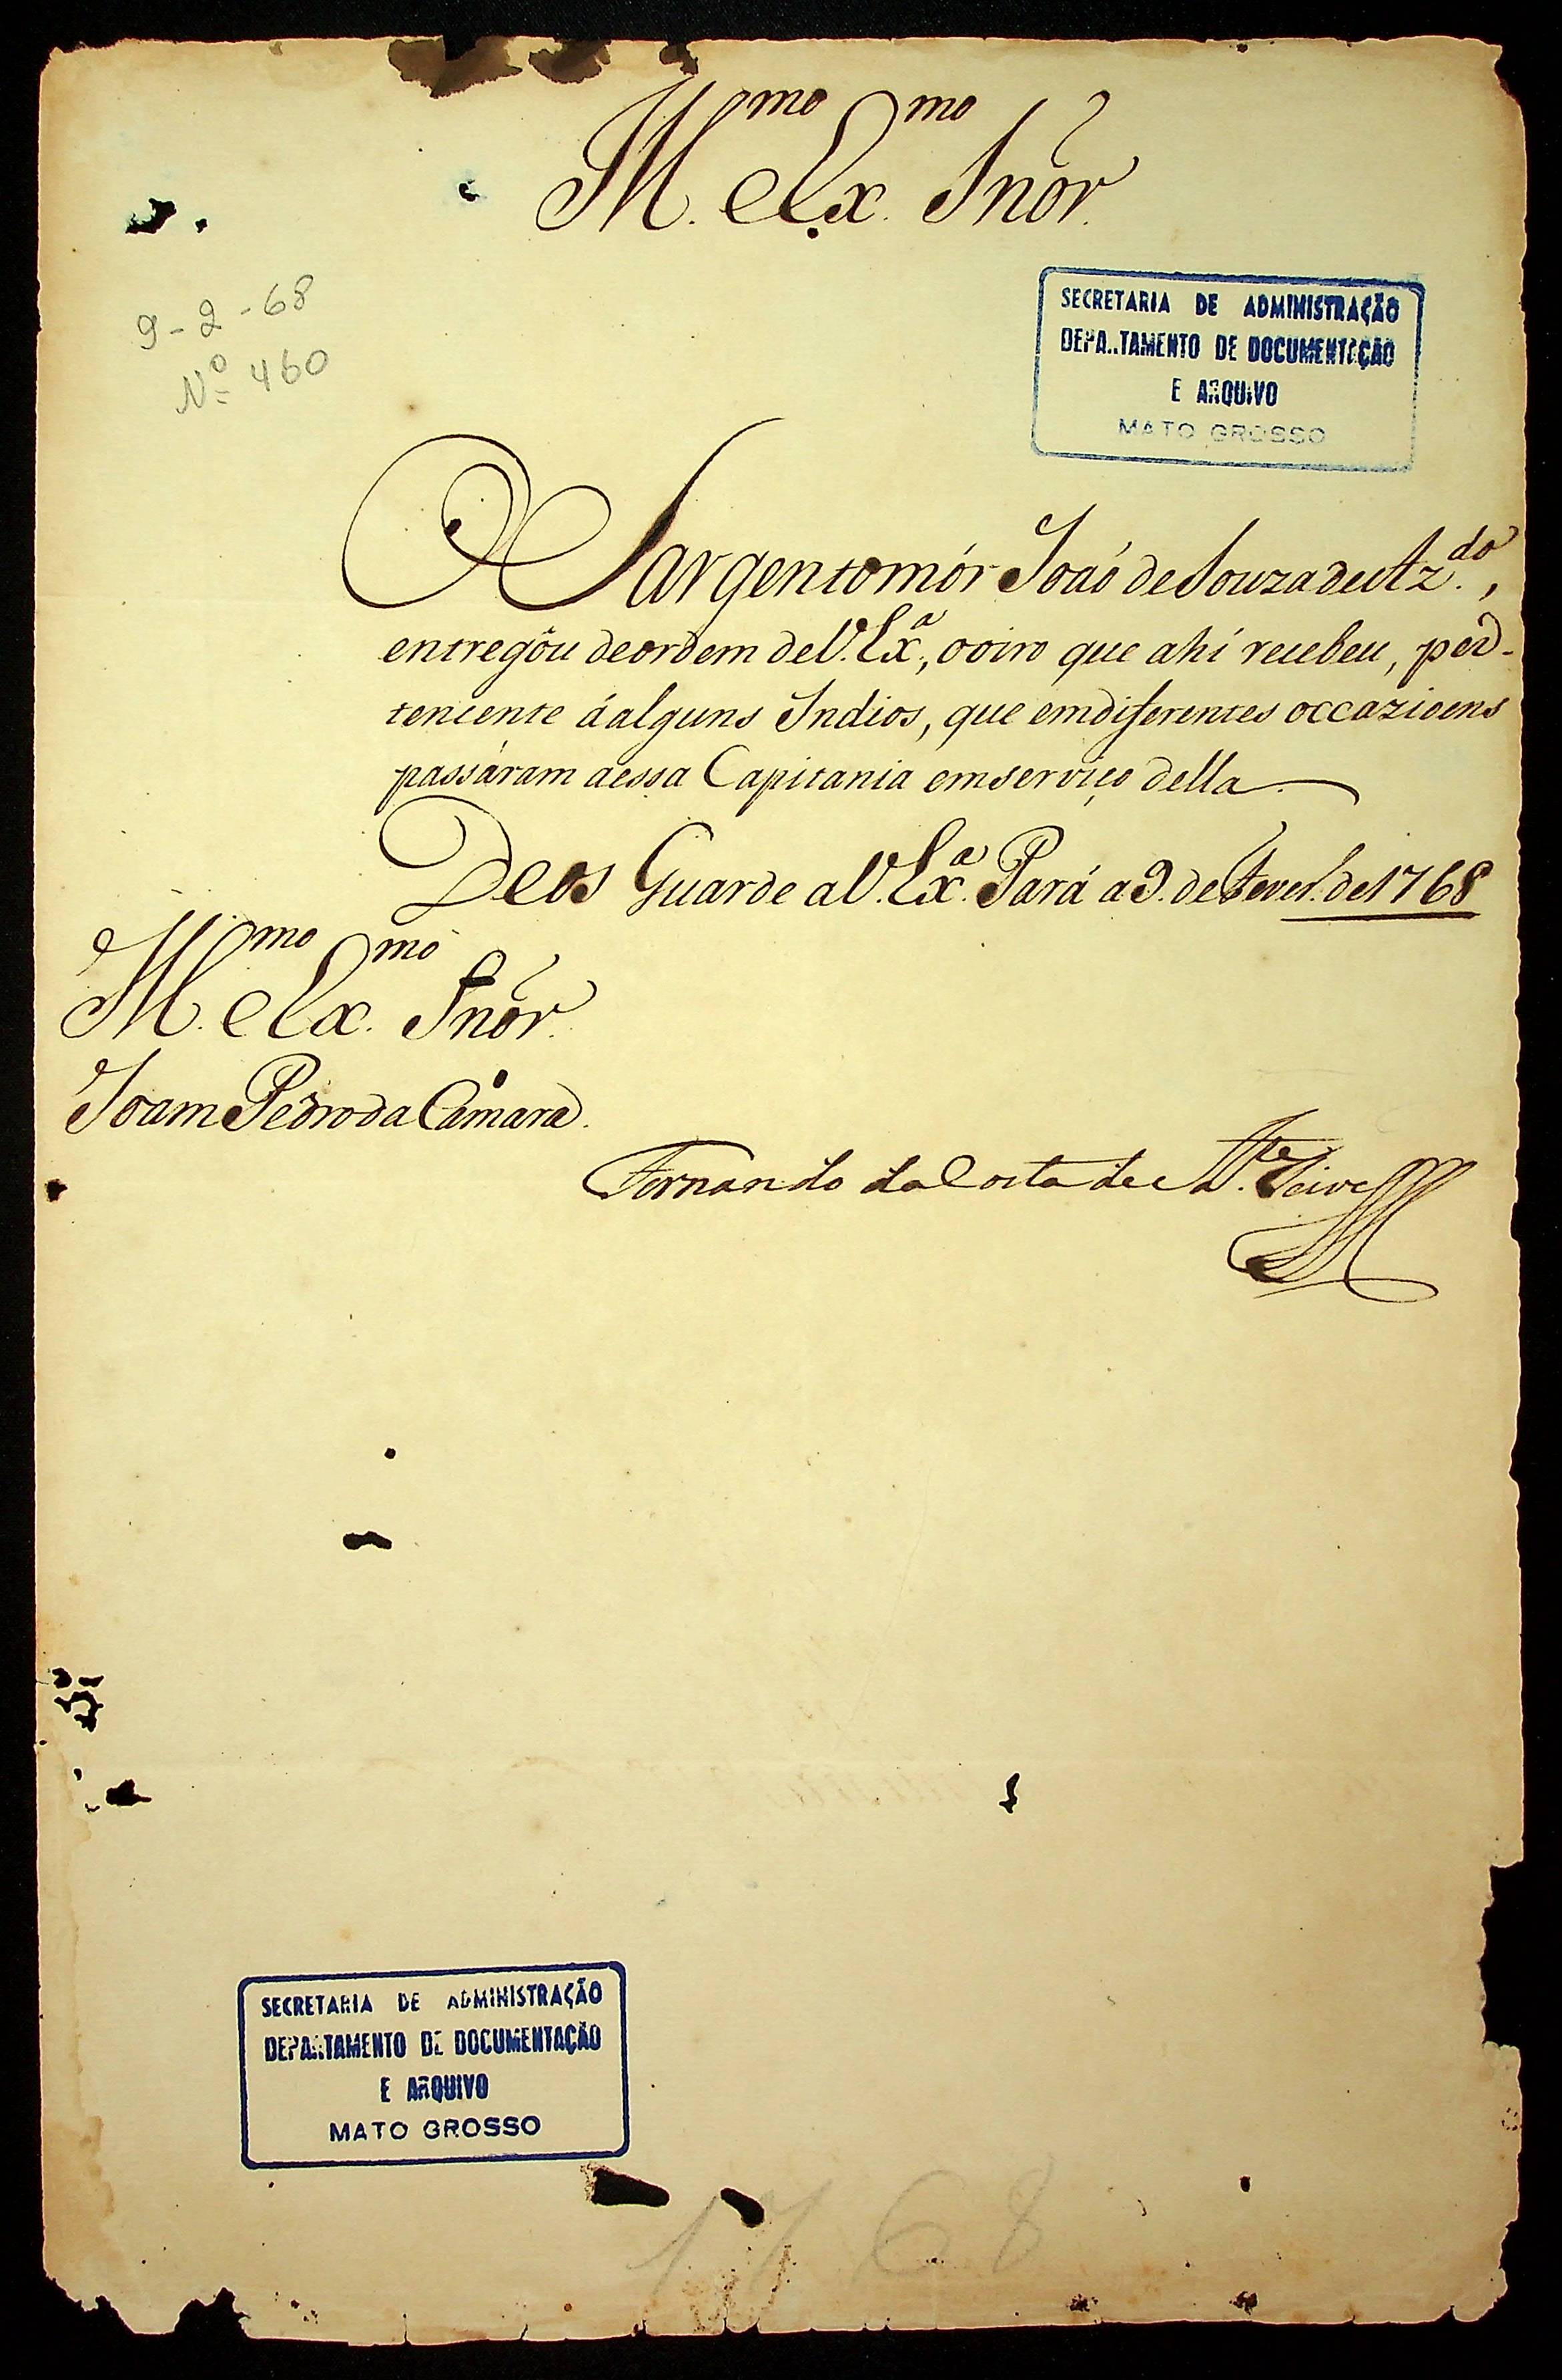 Ill.mo e Ex.mo Snõr.
9-2-68
Nº 460
SECRETARIA DE ADMINISTRAÇÃO
DEPARTAMENTO DE DOCUMENTAÇÃO
E ARQUIVO
MATO GROSSO
O Sargentomór Joaõ de Souza de Az.do,
entregôu de ordem de V. Ex.a, o oiro que ahi recebeu, per-
tencente á alguns Indios, que em diferentes occazioens
passáram a essa Capitania em serviço della.
Deos Guarde a V. Ex.a Pará a 9. de Fever. de 1768
Ill.mo e Ex.mo Snõr.
Joam Pedro da Câmara.
Fernando da Costa de At.e Teive
SECRETARIA DE ADMINISTRAÇÃO
DEPARTAMENTO DE DOCUMENTAÇÃO
E ARQUIVO
MATO GROSSO
1768